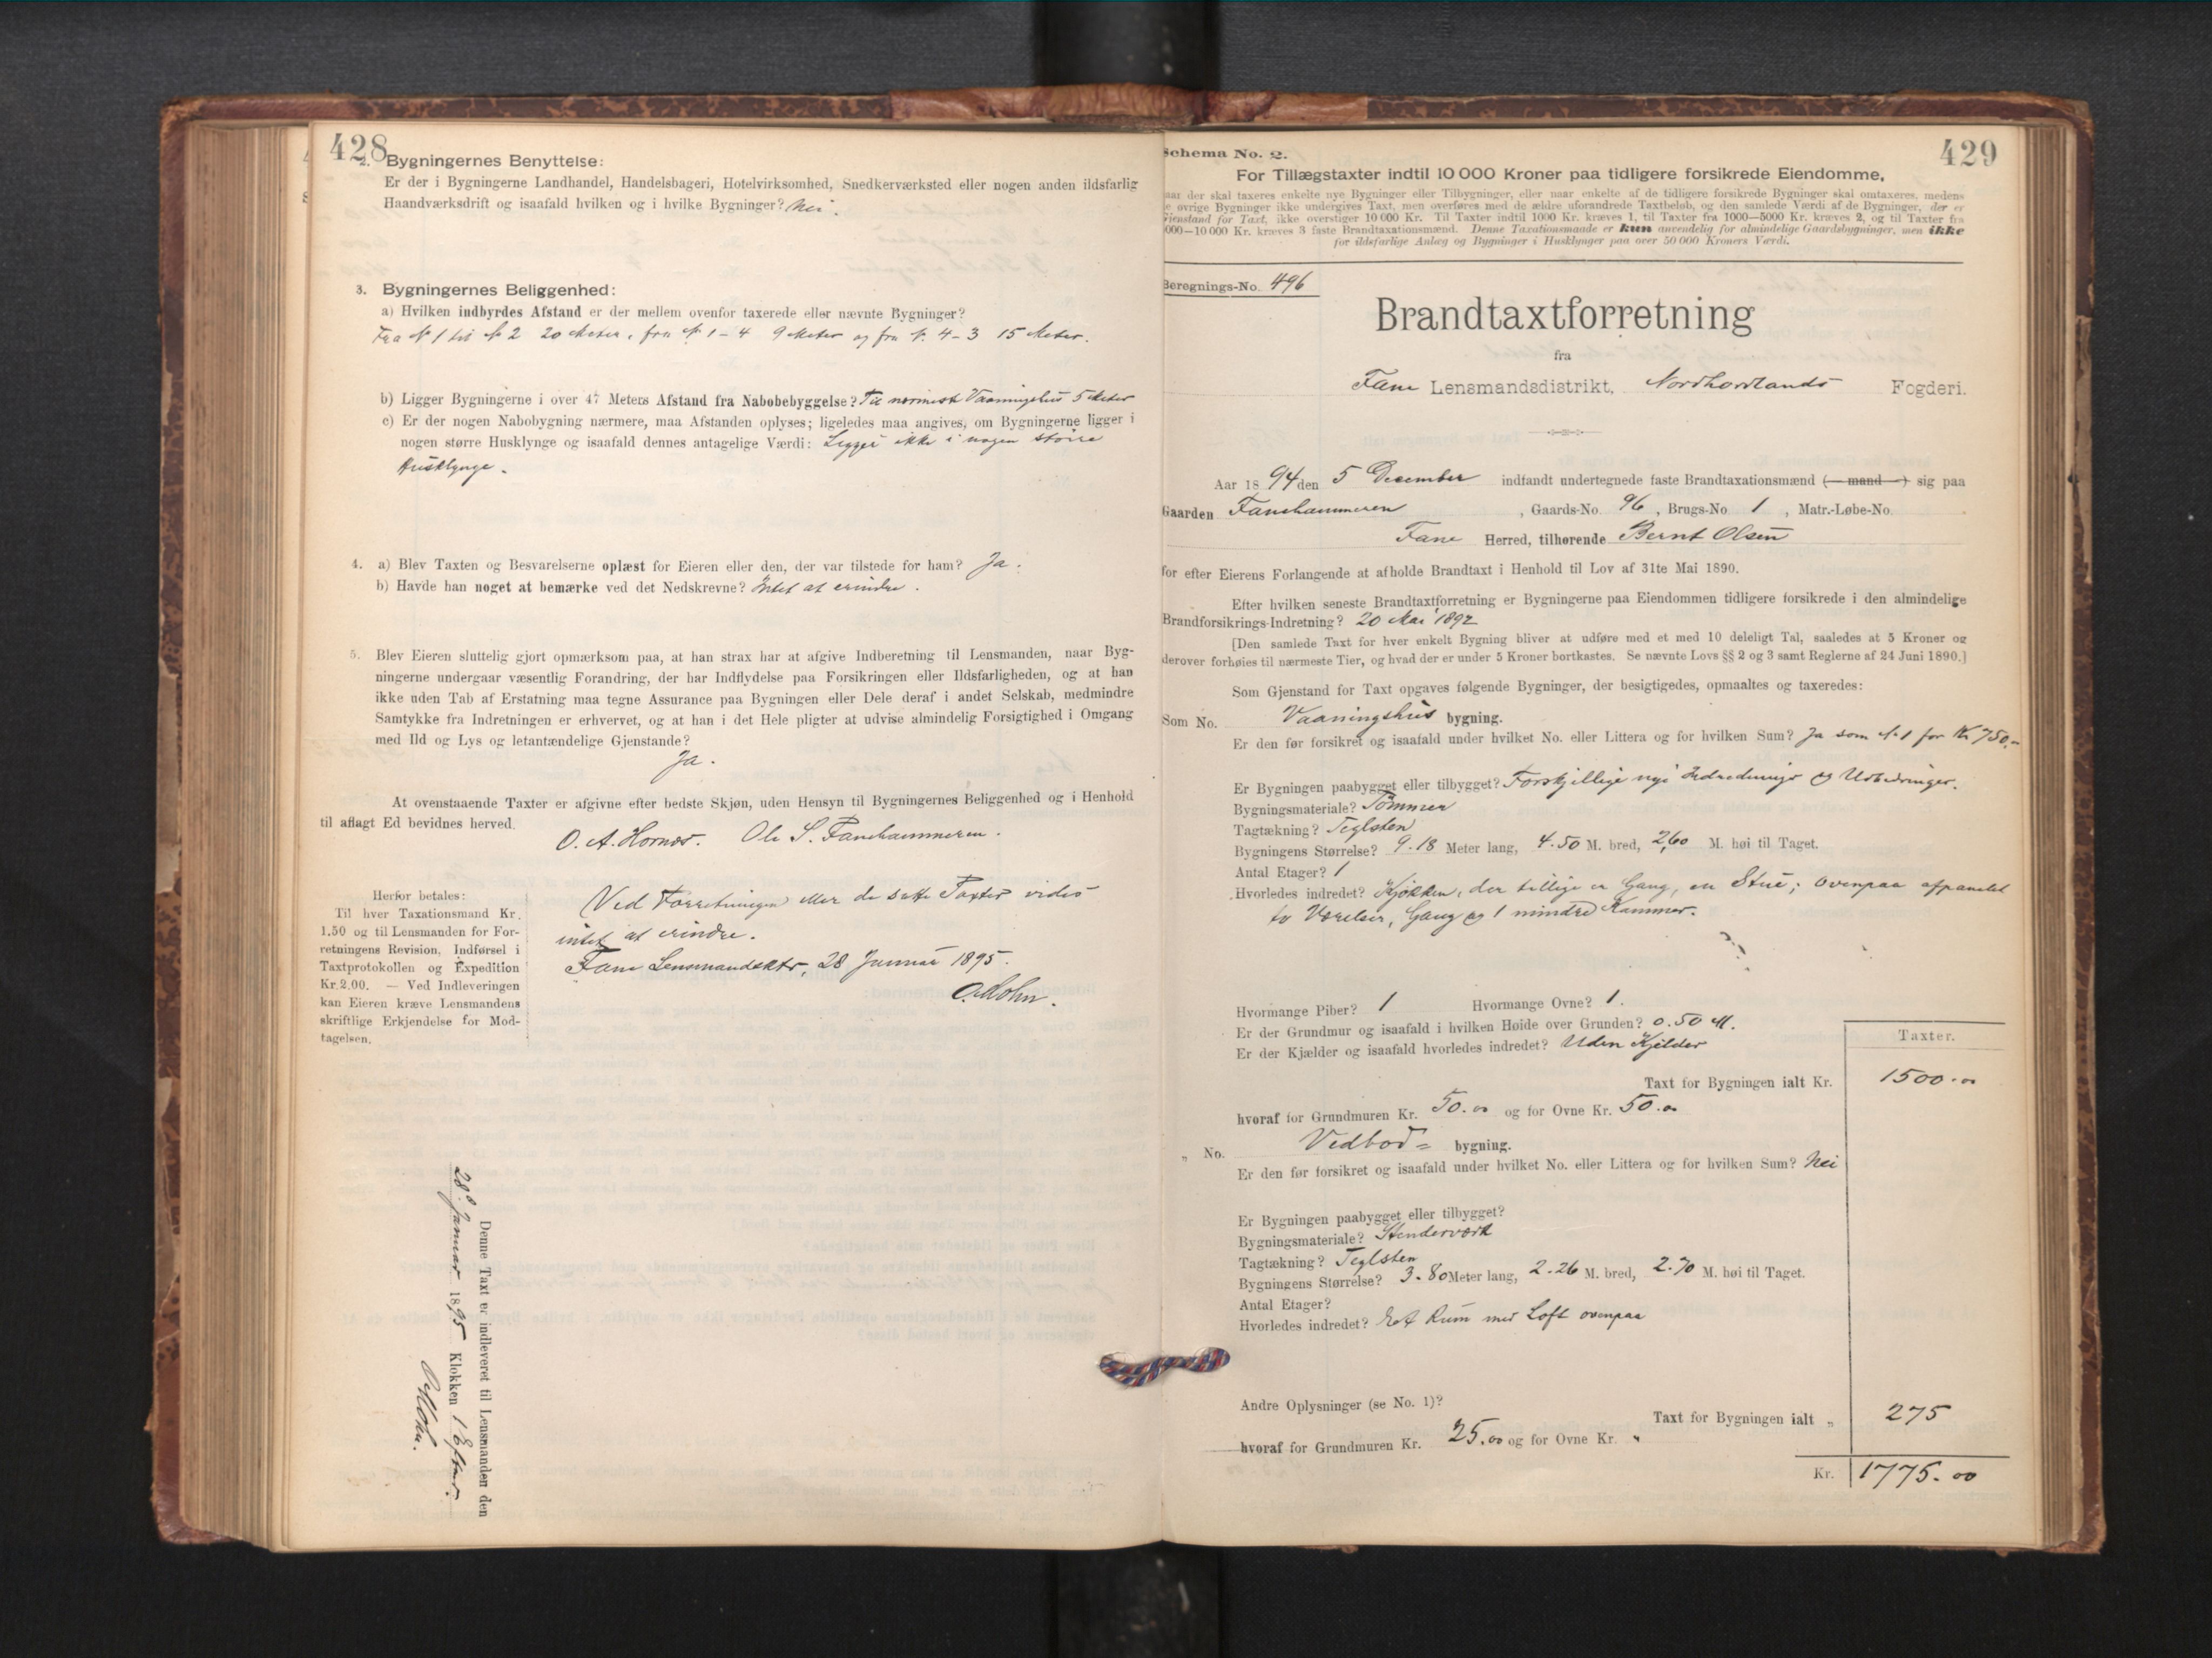 428
2. Bygningernes Benyttelse:
Er der i Bygningerne Landhandel, Handelsbageri, Hotelvirksomhed, Snedkerværksted eller nogen anden ildsfarlig
Haandværksdrift og isaafald hvilken og i hvilke Bygninger? Nei.
3. Bygningernes Beliggenhed:
a) Hvilken indbyrdes Afstand er der mellem ovenfor taxerede eller nævnte Bygninger?
Fra N 1 til N 2 20 Meter, fra N 1 - 4 9 Meter og fra N. 4 - 3 15 Meter.
b) Ligger Bygningerne i over 47 Meters Afstand fra Nabobebyggelse? Til nærmeste Vaaningshus 5 Meter
c) Er der nogen Nabobygning nærmere, maa Afstanden oplyses; ligeledes maa angives, om Bygningerne ligger i
nogen større Husklynge og isaafald dennes antagelige Værdi: Ligger ikke i nogen større
Husklynge.
4. a) Blev Taxten og Besvarelserne oplæst for Eieren eller den, der var tilstede for ham? Ja.
b) Havde han noget at bemærke ved det Nedskrevne? Intet at erindre.
5. Blev Eieren sluttelig gjort opmærksom paa, at han strax har at afgive Indberetning til Lensmanden, naar Byg-
ningerne undergaar væsentlig Forandring, der har Indflydelse paa Forsikringen eller Ildsfarligheden, og at han
ikke uden Tab af Erstatning maa tegne Assurance paa Bygningen eller Dele deraf i andet Selskab, medmindre
Samtykke fra Indretningen er erhvervet, og at han i det Hele pligter at udvise almindelig Forsigtighed i Omgang
med Ild og Lys og letantændelige Gjenstande?
Ja.
At ovenstaaende Taxter er afgivne efter bedste Skjøn, uden Hensyn til Bygningernes Beliggenhed og i Henhold
til aflagt Ed bevidnes herved.
O. A. Hornæs. Ole S. Fanehammeren.
Herfor betales:
Til hver Taxationsmand Kr.
1,50 og til Lensmanden for For-
retningens Revision, Indførsel i
Taxtprotokollen og Expedition
Kr. 2,00. — Ved Indleveringen
kan Eieren kræve Lensmandens
skriftlige Erkjendelse for Mod-
tagelsen.
Ved Forretningen eller de satte Taxter vides
intet at erindre.
Fane Lensmandsktr, 28 Januar 1895.
Denne Taxt er indleveret til Lensmanden den
28de Januar 1895 Klokken 1 Efterm.
429
Schema No. 2.
For Tillægstaxter indtil 10 000 Kroner paa tidligere forsikrede Eiendomme,
aar der skal taxeres enkelte nye Bygninger eller Tilbygninger, eller naar enkelte af de tidligere forsikrede Bygninger skal omtaxeres, medens
e øvrige Bygninger ikke undergives Taxt, men overføres med de ældre uforandrede Taxtbeløb, og den samlede Værdi af de Bygninger, der er
Gjenstand for Taxt, ikke overstiger 10 000 Kr. Til Taxter indtil 1000 Kr. kræves 1, til Taxter fra 1000—5000 Kr. kræves 2, og til Taxter fra
000—10 000 Kr. kræves 3 faste Brandtaxationsmænd. Denne Taxationsmaade er kun anvendelig for almindelige Gaardsbygninger, men ikke
for ildsfarlige Anlæg og Bygninger i Husklynger paa over 50 000 Kroners Værdi.
Beregnings-No. 496
Brandtaxtforretning
fra
Fane Lensmandsdistrikt, Nordhordlands Fogderi.
Aar 1894 den 5 December indfandt undertegnede faste Brandtaxationsmænd (— mand —) sig paa
Gaarden Fanehammeren, Gaards-No. 96, Brugs-No 1, Matr.-Løbe-No.
Fane Herred, tilhørende Bernt Olsen
for efter Eierens Forlangende at afholde Brandtaxt i Henhold til Lov af 31te Mai 1890.
Efter hvilken seneste Brandtaxtforretning er Bygningerne paa Eiendommen tidligere forsikrede i den almindelige
Brandforsikrings-Indretning? 20 Mai 1892
[Den samlede Taxt for hver enkelt Bygning bliver at udføre med et med 10 deleligt Tal, saaledes at 5 Kroner og
derover forhøies til nærmeste Tier, og hvad der er under 5 Kroner bortkastes. Se nævnte Lovs §§ 2 og 3 samt Reglerne af 24 Juni 1890.]
Som Gjenstand for Taxt opgaves følgende Bygninger, der besigtigedes, opmaaltes og taxeredes:
Som No. Vaaningshus bygning.
Er den før forsikret og isaafald under hvilket No. eller Littera og for hvilken Sum? Ja som N. 1 for Kr 750,-
Er Bygningen paabygget eller tilbygget? Forskjellige nye Indredninger og Udbedringer.
Bygningsmateriale? Tømmer
Tagtækning? Teglsten
Bygningens Størrelse? 9.18 Meter lang, 4.50 M. bred, 2,60 M. høi til Taget.
Antal Etager? 1
Hvorledes indredet? Kjøkken, der tillige er Gang, en Stue; ovenpaa afpanelet
to Værelser, Gang og 1 mindre Kammer.
Hvormange Piber? 1 Hvormange Ovne? 1.
Er der Grundmur og isaafald i hvilken Høide over Grunden? 0.50 M.
Er der Kjælder og isaafald hvorledes indredet? Uden Kjelder
Taxter.
Taxt for Bygningen ialt Kr. 1500.00
hvoraf for Grundmuren Kr. 50.00 og for Ovne Kr. 50.00
„ No. Vedbod= bygning.
Er den før forsikret og isaafald under hvilket No. eller Littera og for hvilken Sum? Nei
Er Bygningen paabygget eller tilbygget?
Bygningsmateriale? Stenderværk
Tagtækning? Teglsten
Bygningens Størrelse? 3.80 Meter lang, 2.26 M. bred, 2.70 M. høi til Taget.
Antal Etager?
Hvorledes indredet? Et Rum med Loft ovenpaa
Andre Oplysninger (se No. 1)?
Taxt for Bygningen ialt „ 275
hvoraf for Grundmuren Kr. 25.00 og for Ovne Kr. „
Kr. 1775.00